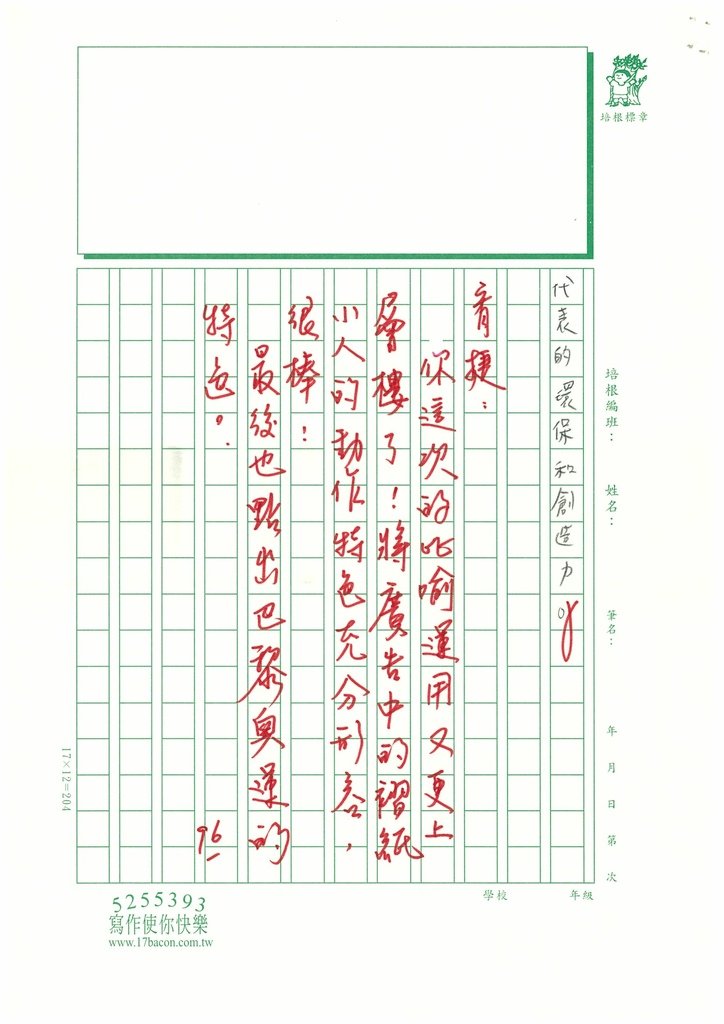 培根標章
培根編班：
姓名：
筆名：
年 月 日 第 次
代表的環保和創造力
捷：
你這次的比喻運用又更上
層樓了！將廣告中的褶紙
小人的動作特色充分形容，
很棒！
最後也點出巴黎奧運的
特色。
96
17×12=204
學校 年級
5255393
寫作使你快樂
www.17bacon.com.tw